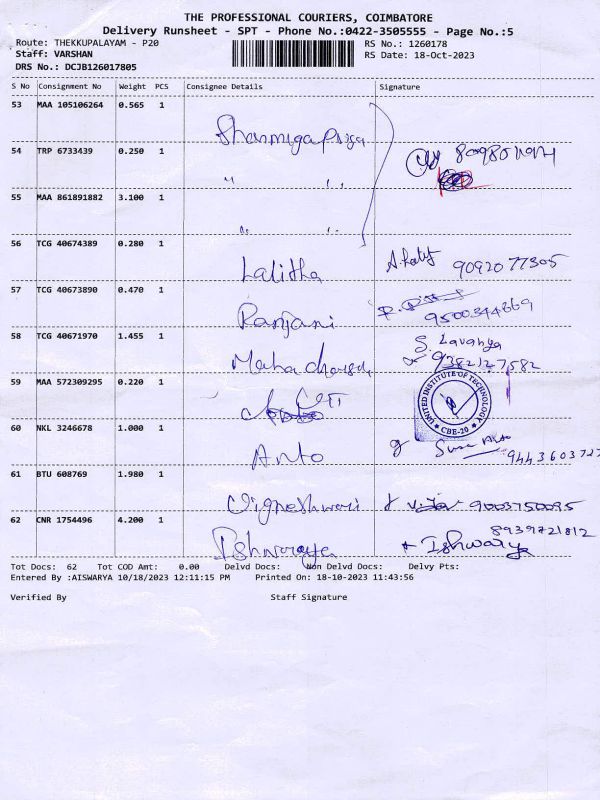 THE PROFESSIONAL COURIERS, COIMBATORE
Delivery Runsheet - SPT - Phone No.:0422-3505555 - Page No.:5
Route: THEKKUPALAYAM - P20 RS No.: 1260178
Staff: VARSHAN RS Date: 18-Oct-2023
DRS No.: DCJB126017805
S No Consignment No Weight PCS Consignee Details Signature
53 MAA 105106264 0.565 1
Shanmugapriya
54 TRP 6733439 0.250 1
" "
55 MAA 861891882 3.100 1
" "
56 TCG 40674389 0.280 1
Lalitha 9092077305
57 TCG 40673890 0.470 1
Ranjani 9500344869
58 TCG 40671970 1.455 1
S. Lavanya
9382127582
59 MAA 572309295 0.220 1
UNITED INSTITUTE OF TECHNOLOGY
* CBE-20 *
60 NKL 3246678 1.000 1
Anto
61 BTU 608769 1.980 1
Vigneshwari 9003750095
62 CNR 1754496 4.200 1
8939721812
Ishwaraya Ishwarya
Tot Docs: 62 Tot COD Amt: 0.00 Delvd Docs: Non Delvd Docs: Delvy Pts:
Entered By :AISWARYA 10/18/2023 12:11:15 PM Printed On: 18-10-2023 11:43:56
Verified By Staff Signature